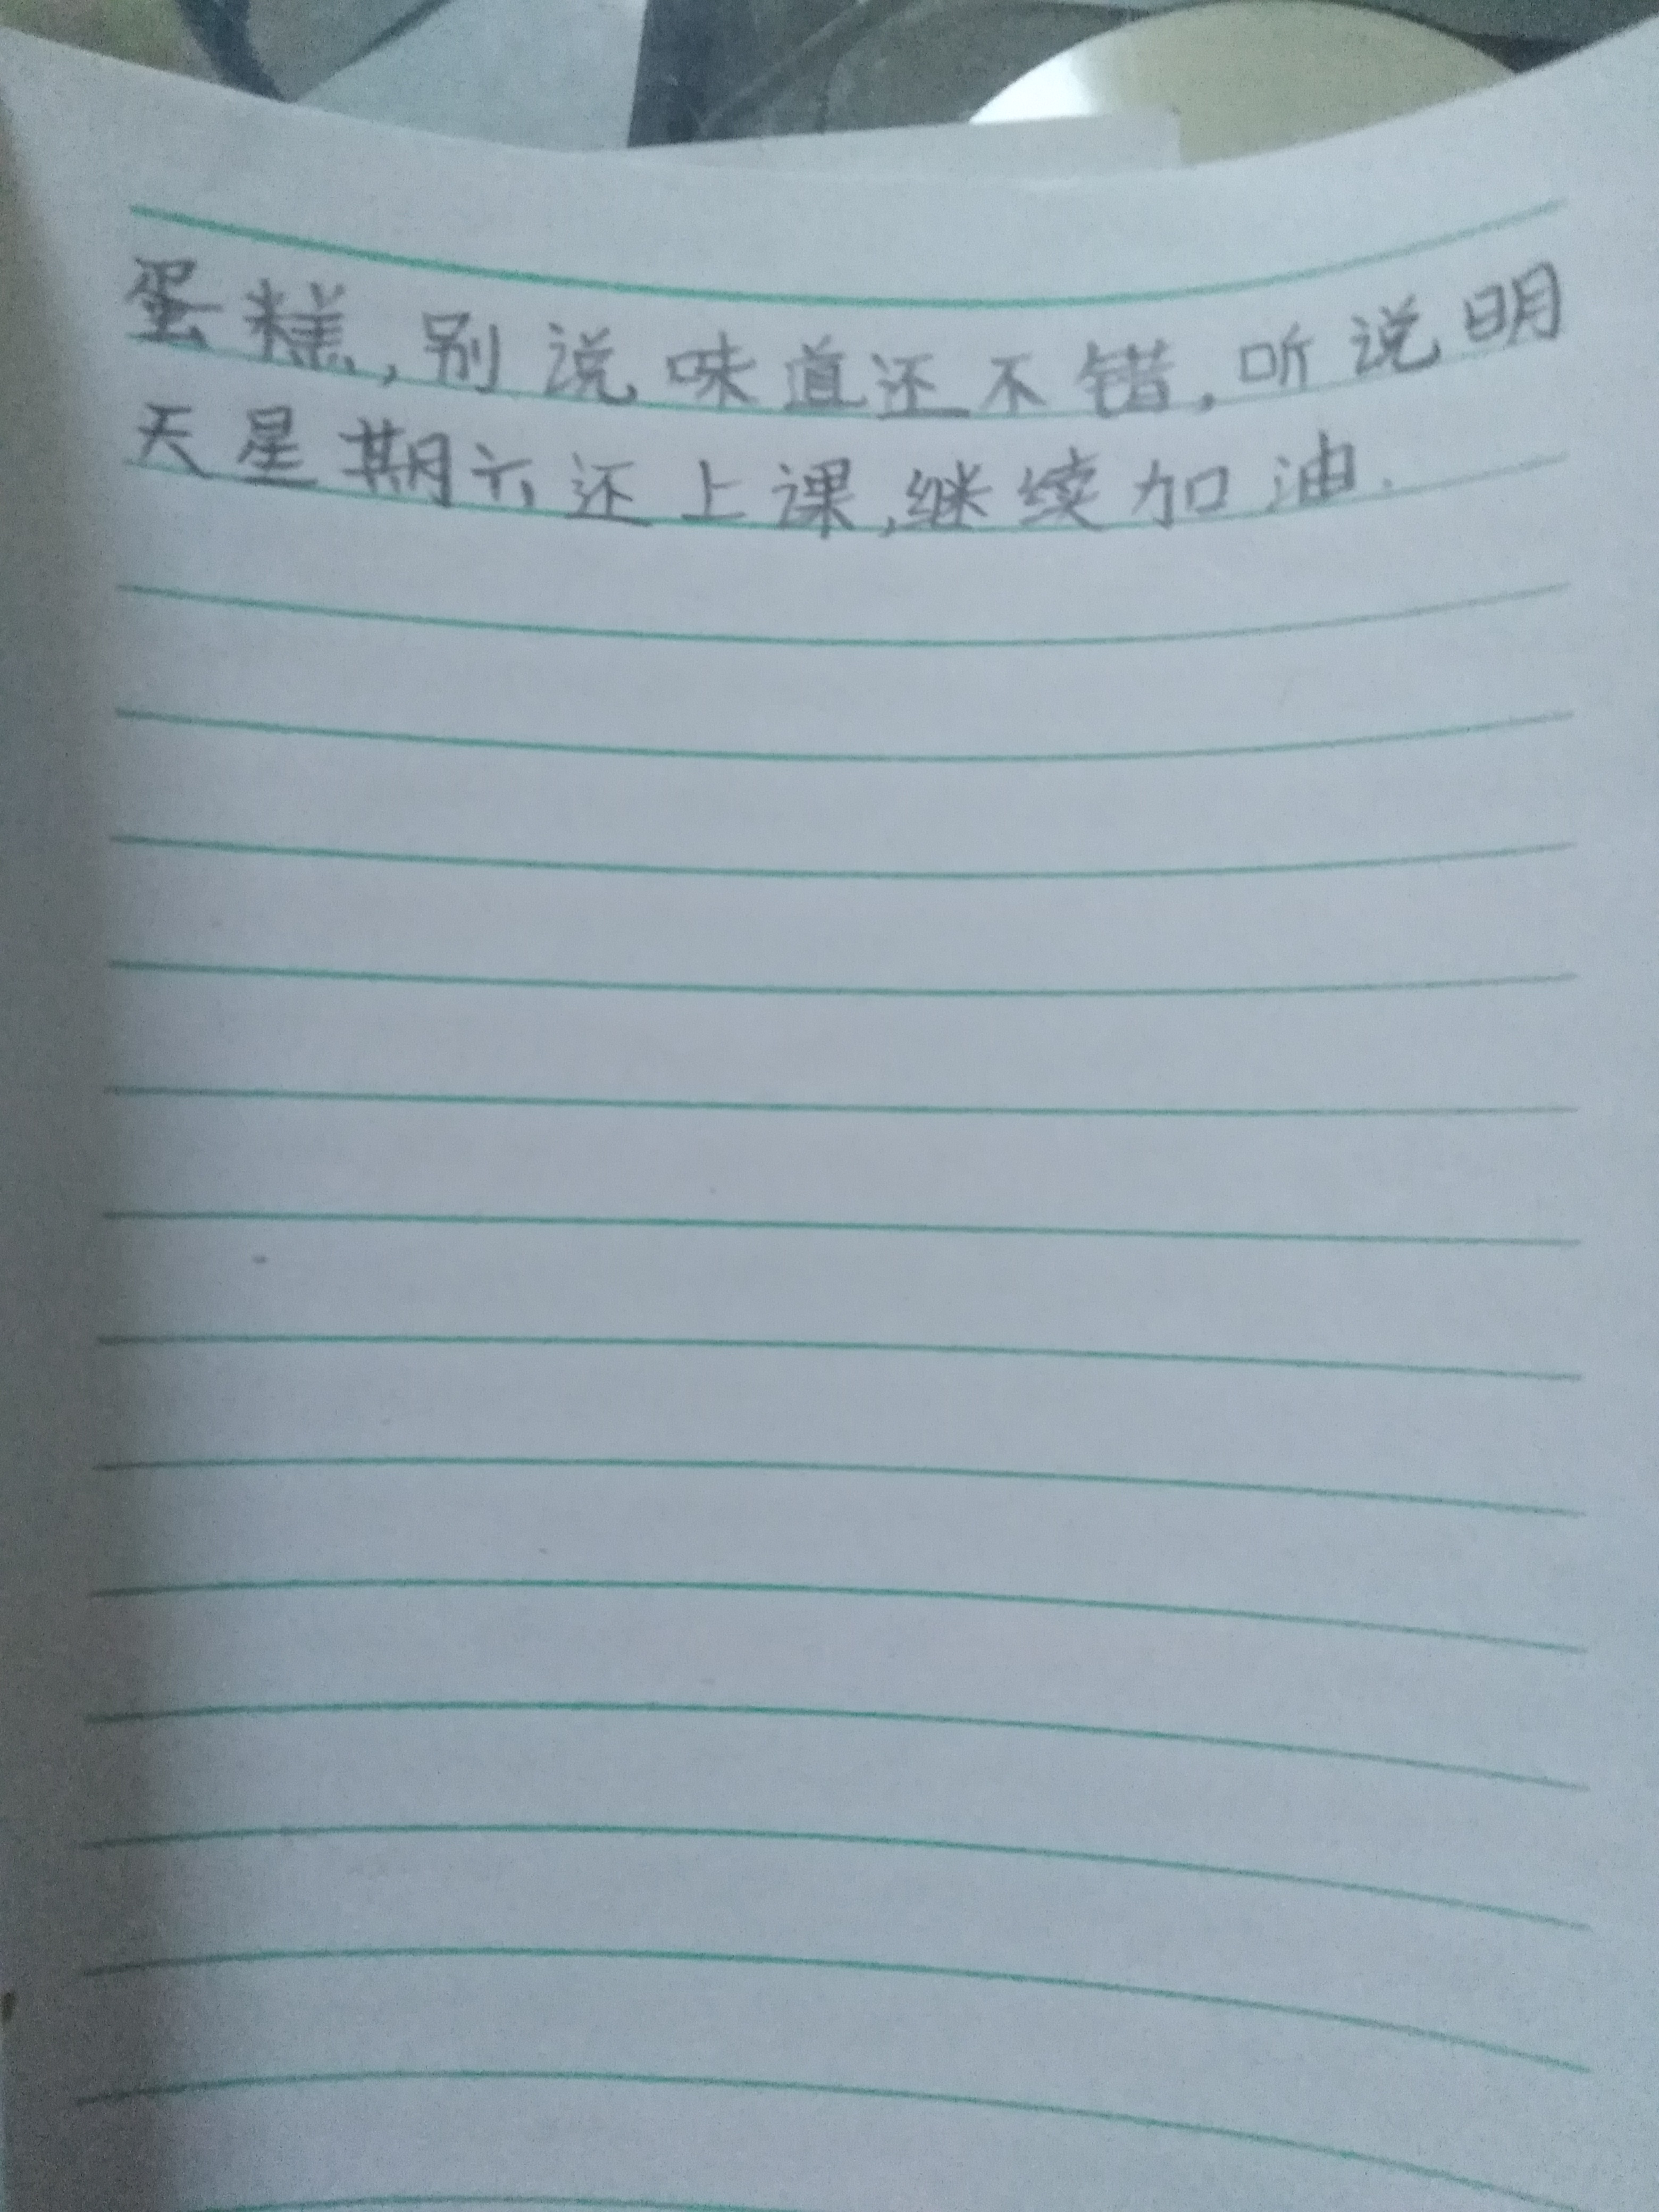 蛋糕,别说味道还不错.听说明
天星期六还上课,继续加油.